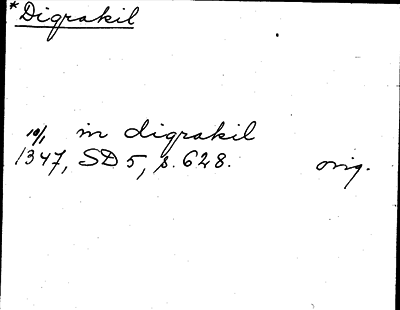 *Digrakil
10/1 in digrakil
1347, SD 5, s. 628. orig.